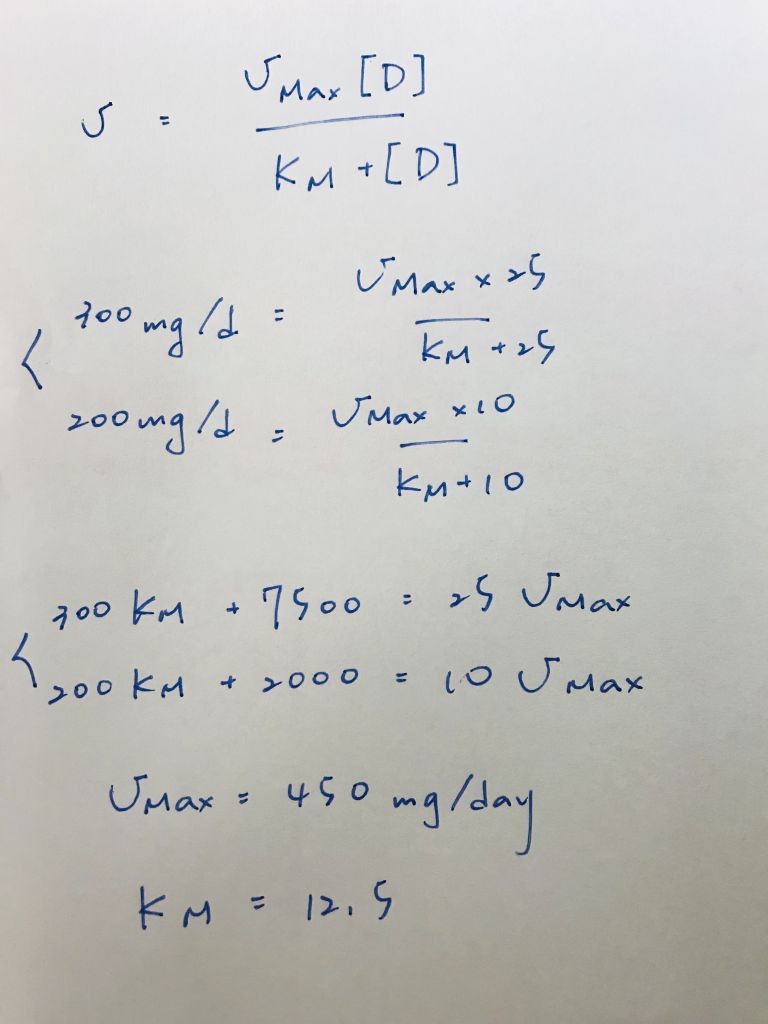 v = vMax [D] / KM + [D]
300 mg/d = vMax x 25 / KM + 25
200 mg/d = vMax x 10 / KM + 10
300 KM + 7500 = 25 vMax
200 KM + 2000 = 10 vMax
vMax = 450 mg/day
KM = 12.5